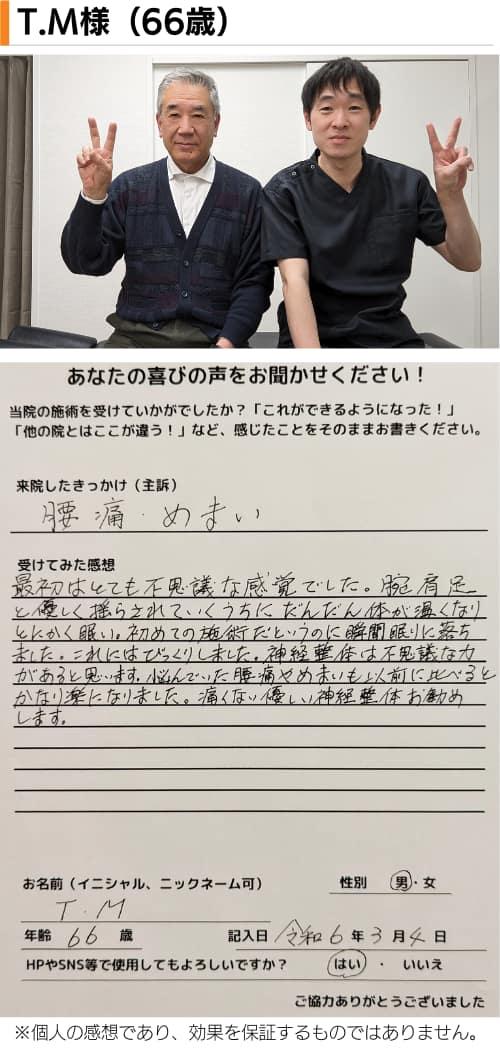 T.M様（66歳）
あなたの喜びの声をお聞かせください！
当院の施術を受けていかがでしたか？「これができるようになった！」
「他の院とはここが違う！」など、感じたことをそのままお書きください。
来院したきっかけ（主訴）
腰痛・めまい
受けてみた感想
最初はとても不思議な感覚でした。腕肩足
と優しく揺らされていくうちにだんだん体が温くなり
とにかく眠い。初めての施術だというのに瞬間眠りに落ち
ました。これにはびっくりしました。神経整体は不思議な力
があると思います。悩んでいた腰痛やめまいも以前に比べると
かなり楽になりました。痛くない優しい神経整体お勧め
します。
お名前（イニシャル、ニックネーム可） 性別 男・女
T.M
年齢 66 歳 記入日 令和6年3月4日
HPやSNS等で使用してもよろしいですか？ はい・いいえ
ご協力ありがとうございました
※個人の感想であり、効果を保証するものではありません。